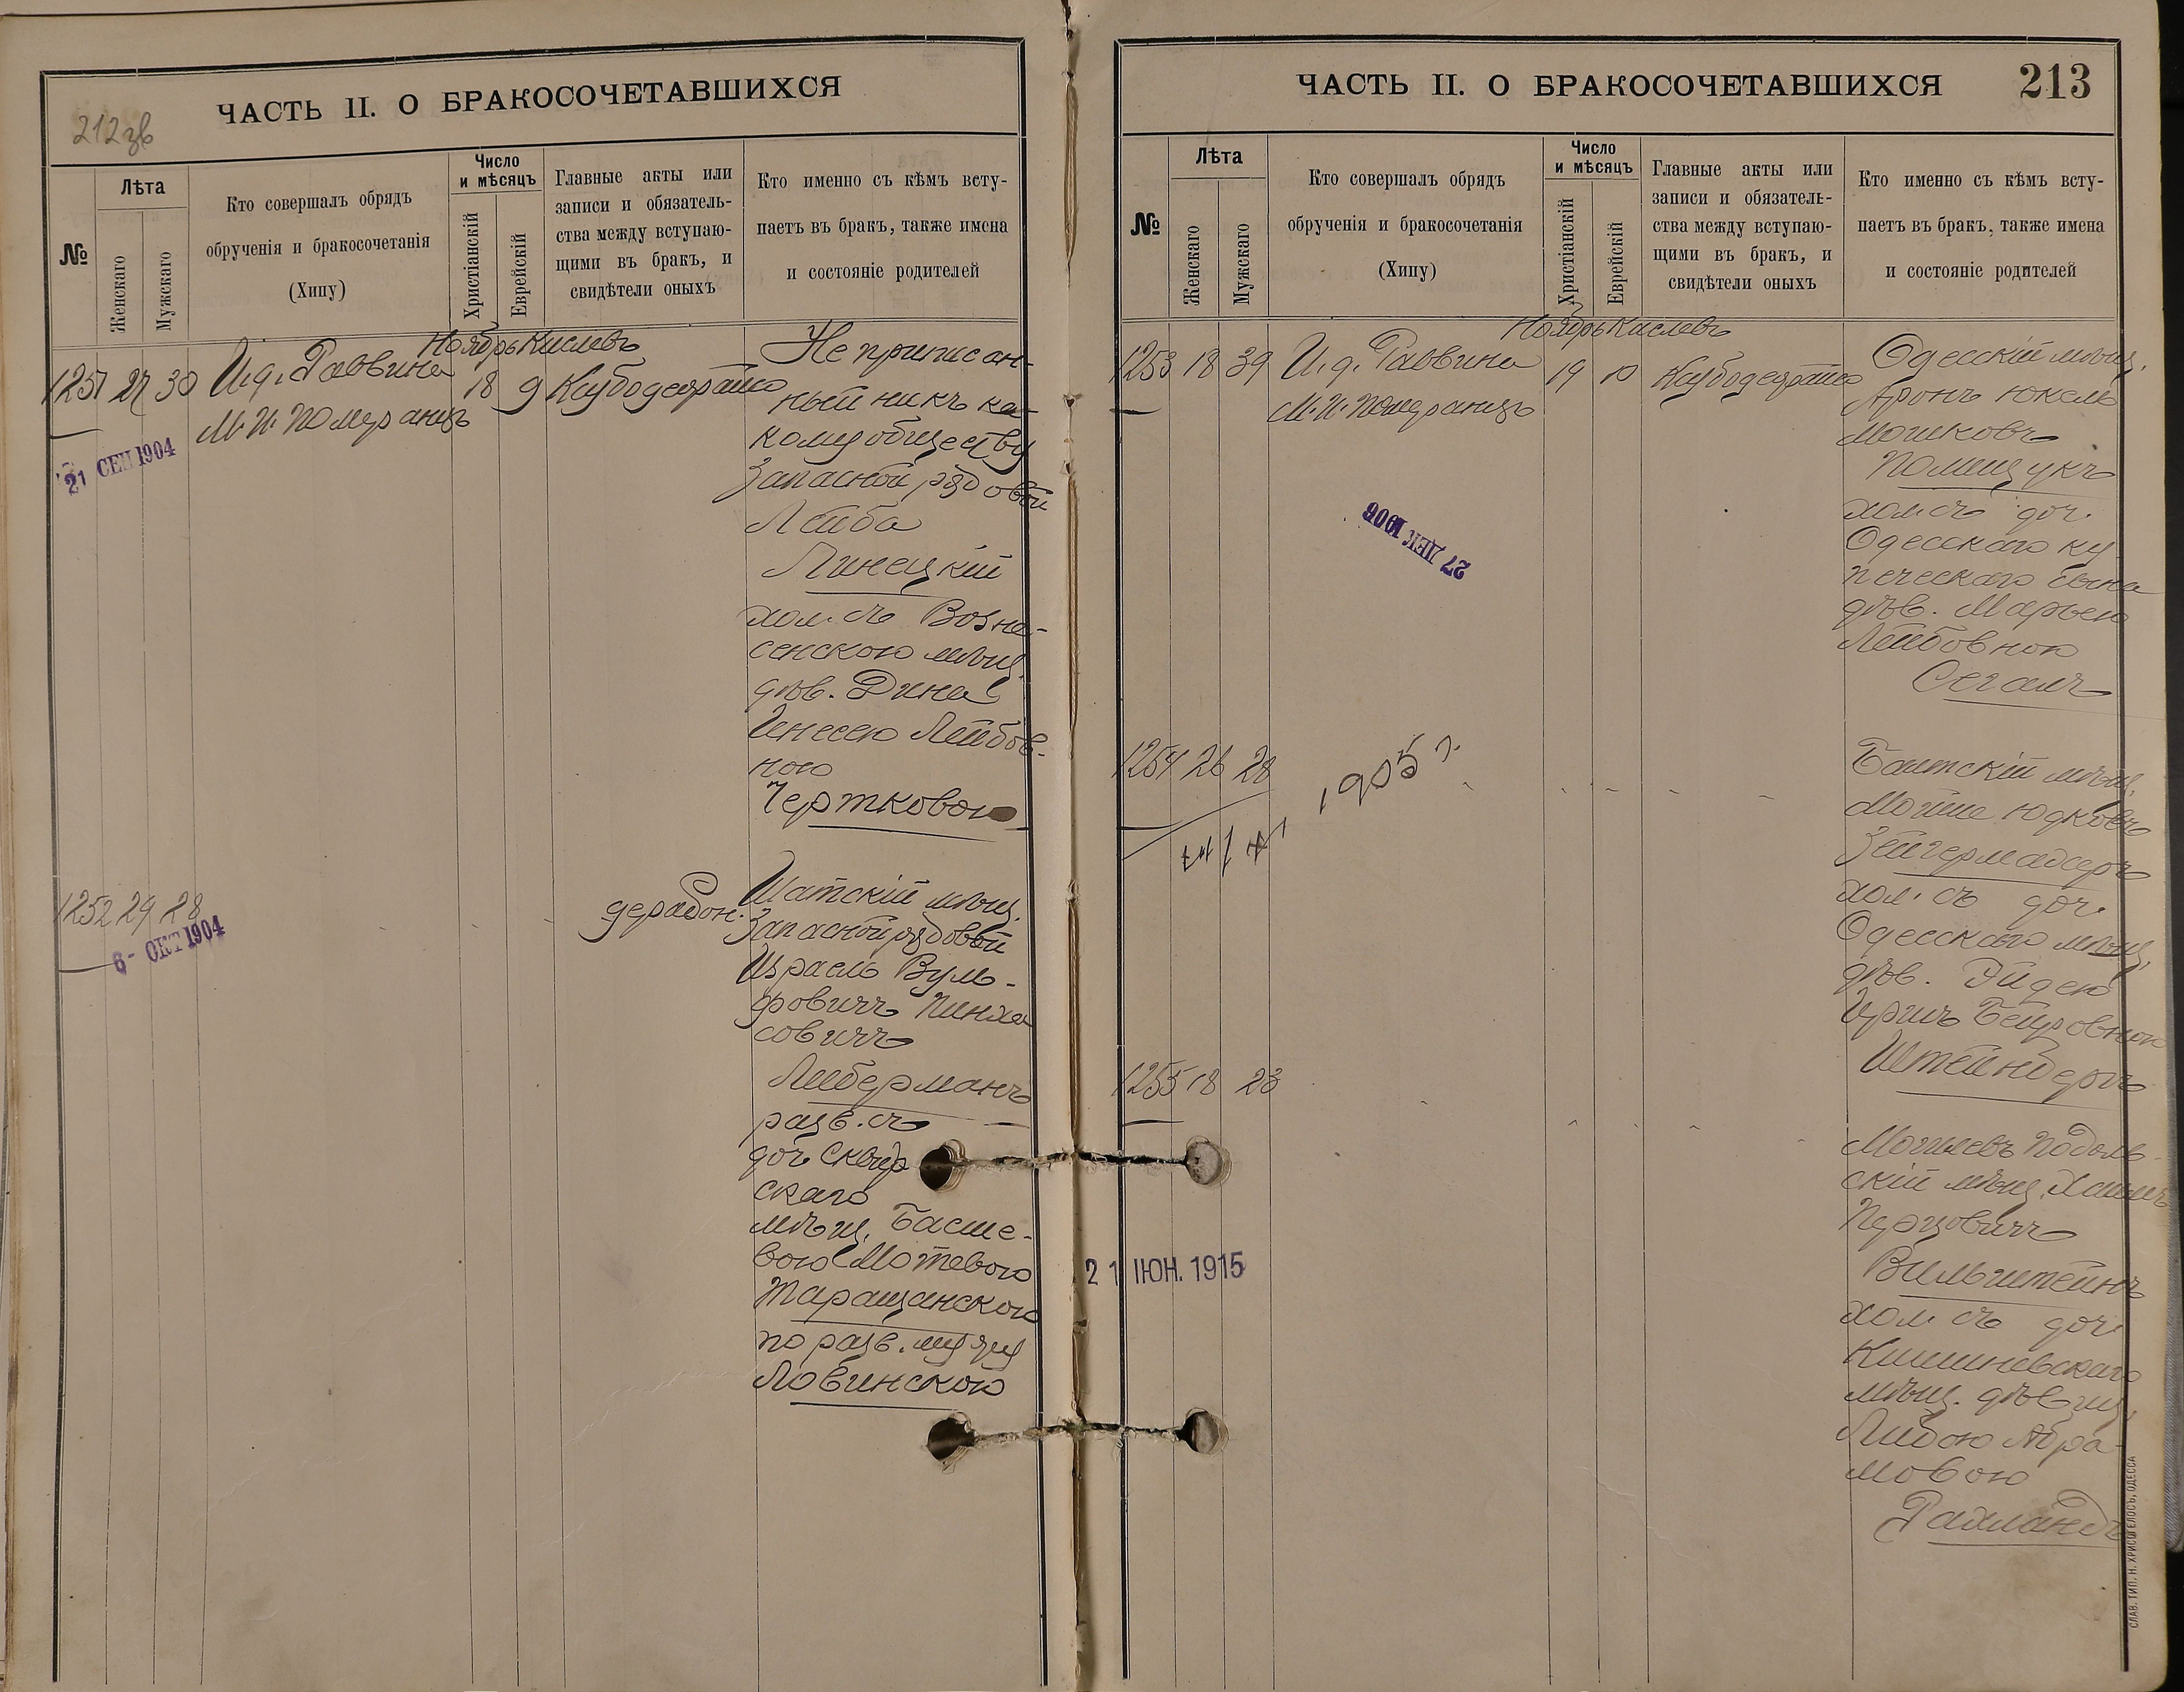 212 зв
ЧАСТЬ II. О БРАКОСОЧЕТАВШИХСЯ
№
Лѣта
Женскаго
Мужскаго
Кто совершалъ обрядъ
обрученія и бракосочетанія
(Хипу)
Число
и мѣсяцъ
Христіанскій
Еврейскій
Главные акты или
записи и обязатель-
ства между вступаю-
щими въ бракъ, и
свидѣтели оныхъ
Кто именно съ кѣмъ всту-
паетъ въ брак, также имена
и состояніе родителей
Ноябрь Кислевъ
1251 27 30 И.д. Раввина 18 9
М. И. Померанцъ
21 СЕН 1904
Не приписан-
ный ни къ ка-
кому обществу
Запасной рядовой
Лейба
Линецкій
хол. съ Возне-
сенскою мѣщ.
дѣв. Дина
Генесею Лейбов-
ною
Чертковою
1252 29 28
6- ОКТ 1904
Шатскій мѣщ.
Запасной рядовой
Израель Вуль-
фовичъ Пинха
совичъ
Либерманъ
разв. съ
доч. Сквир
скаго
мѣщ. Басше-
вою Мотевою
Таращанскою
по разв. мужу
Ловинскою
ЧАСТЬ II. О БРАКОСОЧЕТАВШИХСЯ
213
№
Лѣта
Женскаго
Мужскаго
Кто совершалъ обрядъ
обрученія и бракосочетанія
(Хипу)
Число
и мѣсяцъ
Христіанскій
Еврейскій
Главные акты или
записи и обязатель-
ства между вступаю-
щими въ бракъ, и
свидѣтели оныхъ
Кто именно съ кѣмъ всту-
паетъ въ брак, также имена
и состояніе родителей
Ноябрь Кислевъ
1253 18 39 И.д. Раввина 19 10
М. И. Померанцъ
27 ДЕК 1906
Одесскій мѣщ.
Аронъ Юкель
Мошковъ
Полищукъ
хол. съ доч.
Одесскаго ку-
печескаго сына
дѣв. Марьею
Лейбовною
Сегалъ
1254 26 28
1905 г.
Балтскій мѣщ.
Мойше Юдковъ
Зейгермахеръ
хол. съ доч.
Одесскаго мѣщ.
дѣв. Эйдею
Бейровною
Штейнбергъ
1255 18 23
21 ІЮН. 1915
Могилевъ Подоль-
скій мѣщ. Хаимъ
Перцовичъ
Вильштейнъ
хол. съ доч.
Кишиневскаго
мѣщ. дѣвиц.
Либою Абра-
мовою
СЛАВ. ТИП. Н. ХРИСОГЕЛОСЪ, ОДЕССА